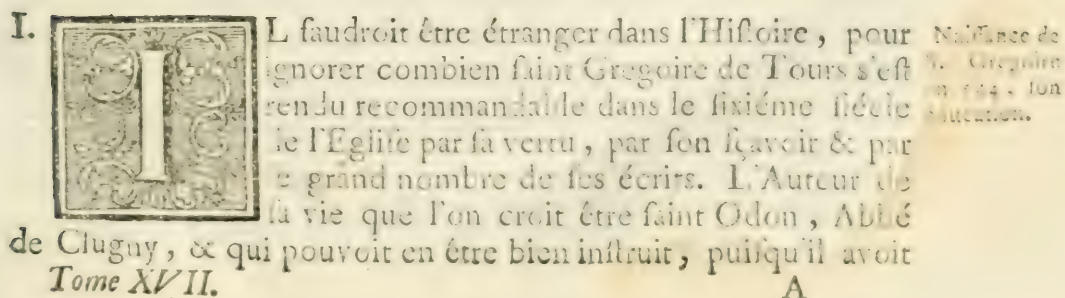 I. IL faudroit être étranger dans l'Histoire, pour
ignorer combien saint Gregoire de Tours s'est
rendu recommandable dans le sixiéme siécle
de l'Eglise par sa vertu, par son sçavoir & par
le grand nombre de ses écrits. L'Auteur de
sa vie que l'on croit être saint Odon, Abbé
de Clugny, & qui pouvoit en être bien instruit, puisqu'il avoit
Tome XVII. A
Naissance de
S. Gregoire
en 544, son
éducation.